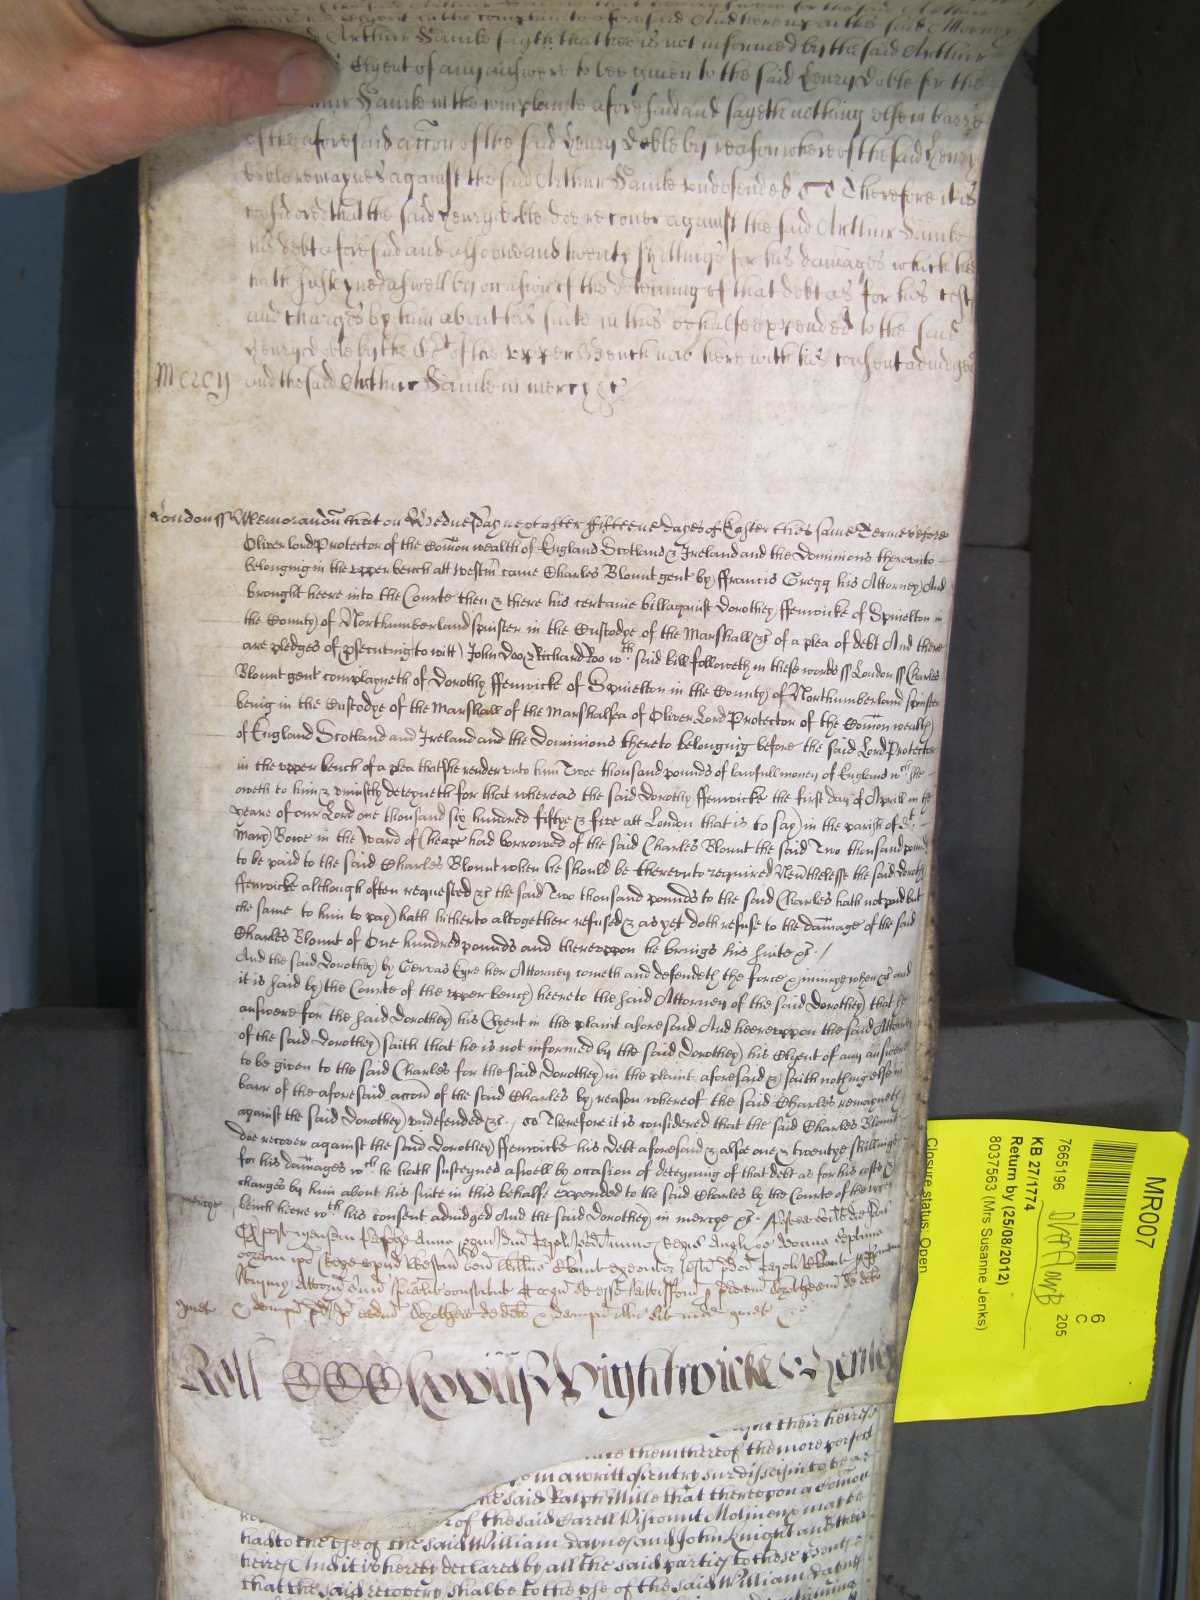 Arthur Samle sayth that hee is not informed by the said Arthur
Clyent of any answere to bee given to the said Henry Doble for the
Samle in the complainte aforesaid and sayeth nothing else in barre
of the aforesaid accon of the said Henry Doble by reason whereof the said Henry
Doble remaynes against the said Arthur Samle undefended Therefore it is
considered that the said Henry Doble doe recover against the said Arthur Samle
his debt aforesaid and alsoe one and twenty shillings for his damages which hee
hath susteyned aswell by occasion of the deteining of that debt as for his costs
and charges by him about his suite in this behalfe expended to the said
Henry Doble by the Ct of the upper Bench now here with his consent adiudged
Mercy and the said Arthur Samle in mercy &c
London ss Memorandu that on Wednesday next after fifteene dayes of Easter this same Terme before
Oliver lord Protector of the Comon wealth of England Scotland & Ireland and the Dominions thereunto
belonging in the upper bench att Westm came Charles Blount gent by ffrancis Gregg his Attorney And
brought heere into the Courte then & there his certaine bill against Dorothey ffenwicke of Spinelton in
the County of Northumberland spinster in the Custodye of the Marshall &c of a plea of debt And there
are pledges of psecuting to witt John Doo & Richard Roo wch said bill followeth in these words ss London ss Charles
Blount gent complayneth of Dorothy ffenwicke of Spinelton in the County of Northumberland spinster
being in the Custodye of the Marshall of the Marshalsea of Oliver Lord Protector of the Comon wealth
of England Scotland and Ireland and the Dominions thereto belonging before the said Lord Protector
in the upper bench of a plea that she render unto him Twoe thousand pounds of lawfull money of England wch she
oweth to him & uniustly deteyneth for that whereas the said Dorothy ffenwicke the first day of Aprill in the
yeare of our Lord one thousand six hundred fiftye & five att London that is to say in the parish of St
Mary Bowe in the Ward of Cheape had borrowed of the said Charles Blount the said Two thousand pounds
to be paid to the said Charles Blount when he should be thereunto required Nevthelesse the said Dorothy
ffenwicke although often requested &c the said Two thousand pounds to the said Charles hath not paid but
the same to him to pay hath hitherto altogether refused & as yet doth refuse to the damage of the said
Charles Blount of One hundred pounds and thereuppon he brings his suite &c
And the said Dorothey by Gervas Eyre her Attorney cometh and defendeth the force & iniurye when &c and
it is said by the Courte of the upper bench heere to the said Attorney of the said Dorothey that he
answere for the said Dorothey his Clyent in the plaint aforesaid And heereuppon the said Attorney
of the said Dorothey saith that he is not informed by the said Dorothey his Clyent of any answere
to be given to the said Charles for the said Dorothey in the plaint aforesaid & saith nothing else in
barr of the aforesaid accon of the said Charles by reason whereof the said Charles remayneth
against the said Dorothey undefended &c Therefore it is considered that the said Charles Blount
doe recover against the said Dorothey ffenwicke his Debt aforesaid & alsoe one & twentye shillings
for his damages wch he hath susteyned aswell by occasion of deteyning of that debt as for his costs &
charges by him about his suite in this behalfe expended to the said Charles by the Courte of the upper
mercye bench heere wth his consent adiudged And the said Dorothey in mercye &c
Roll Wightwicke & Henley
their heires
them thereof the more perfect
a writt of entry sur disseisin to be
the said Ralph Mille that thereupon a Comon
of the said Carell Viscount Molineux may be
had to the use of the said William Dawnes and John Knight and their
heires And it is hereby declared by all the said parties to these presents
that the said recovery shalbe to the use of the said William Dawnes
MR007
7665196
6
C
205
KB 27/1774
Return by (25/08/2012)
8037563 (Mrs Susanne Jenks)
Closure status: Open